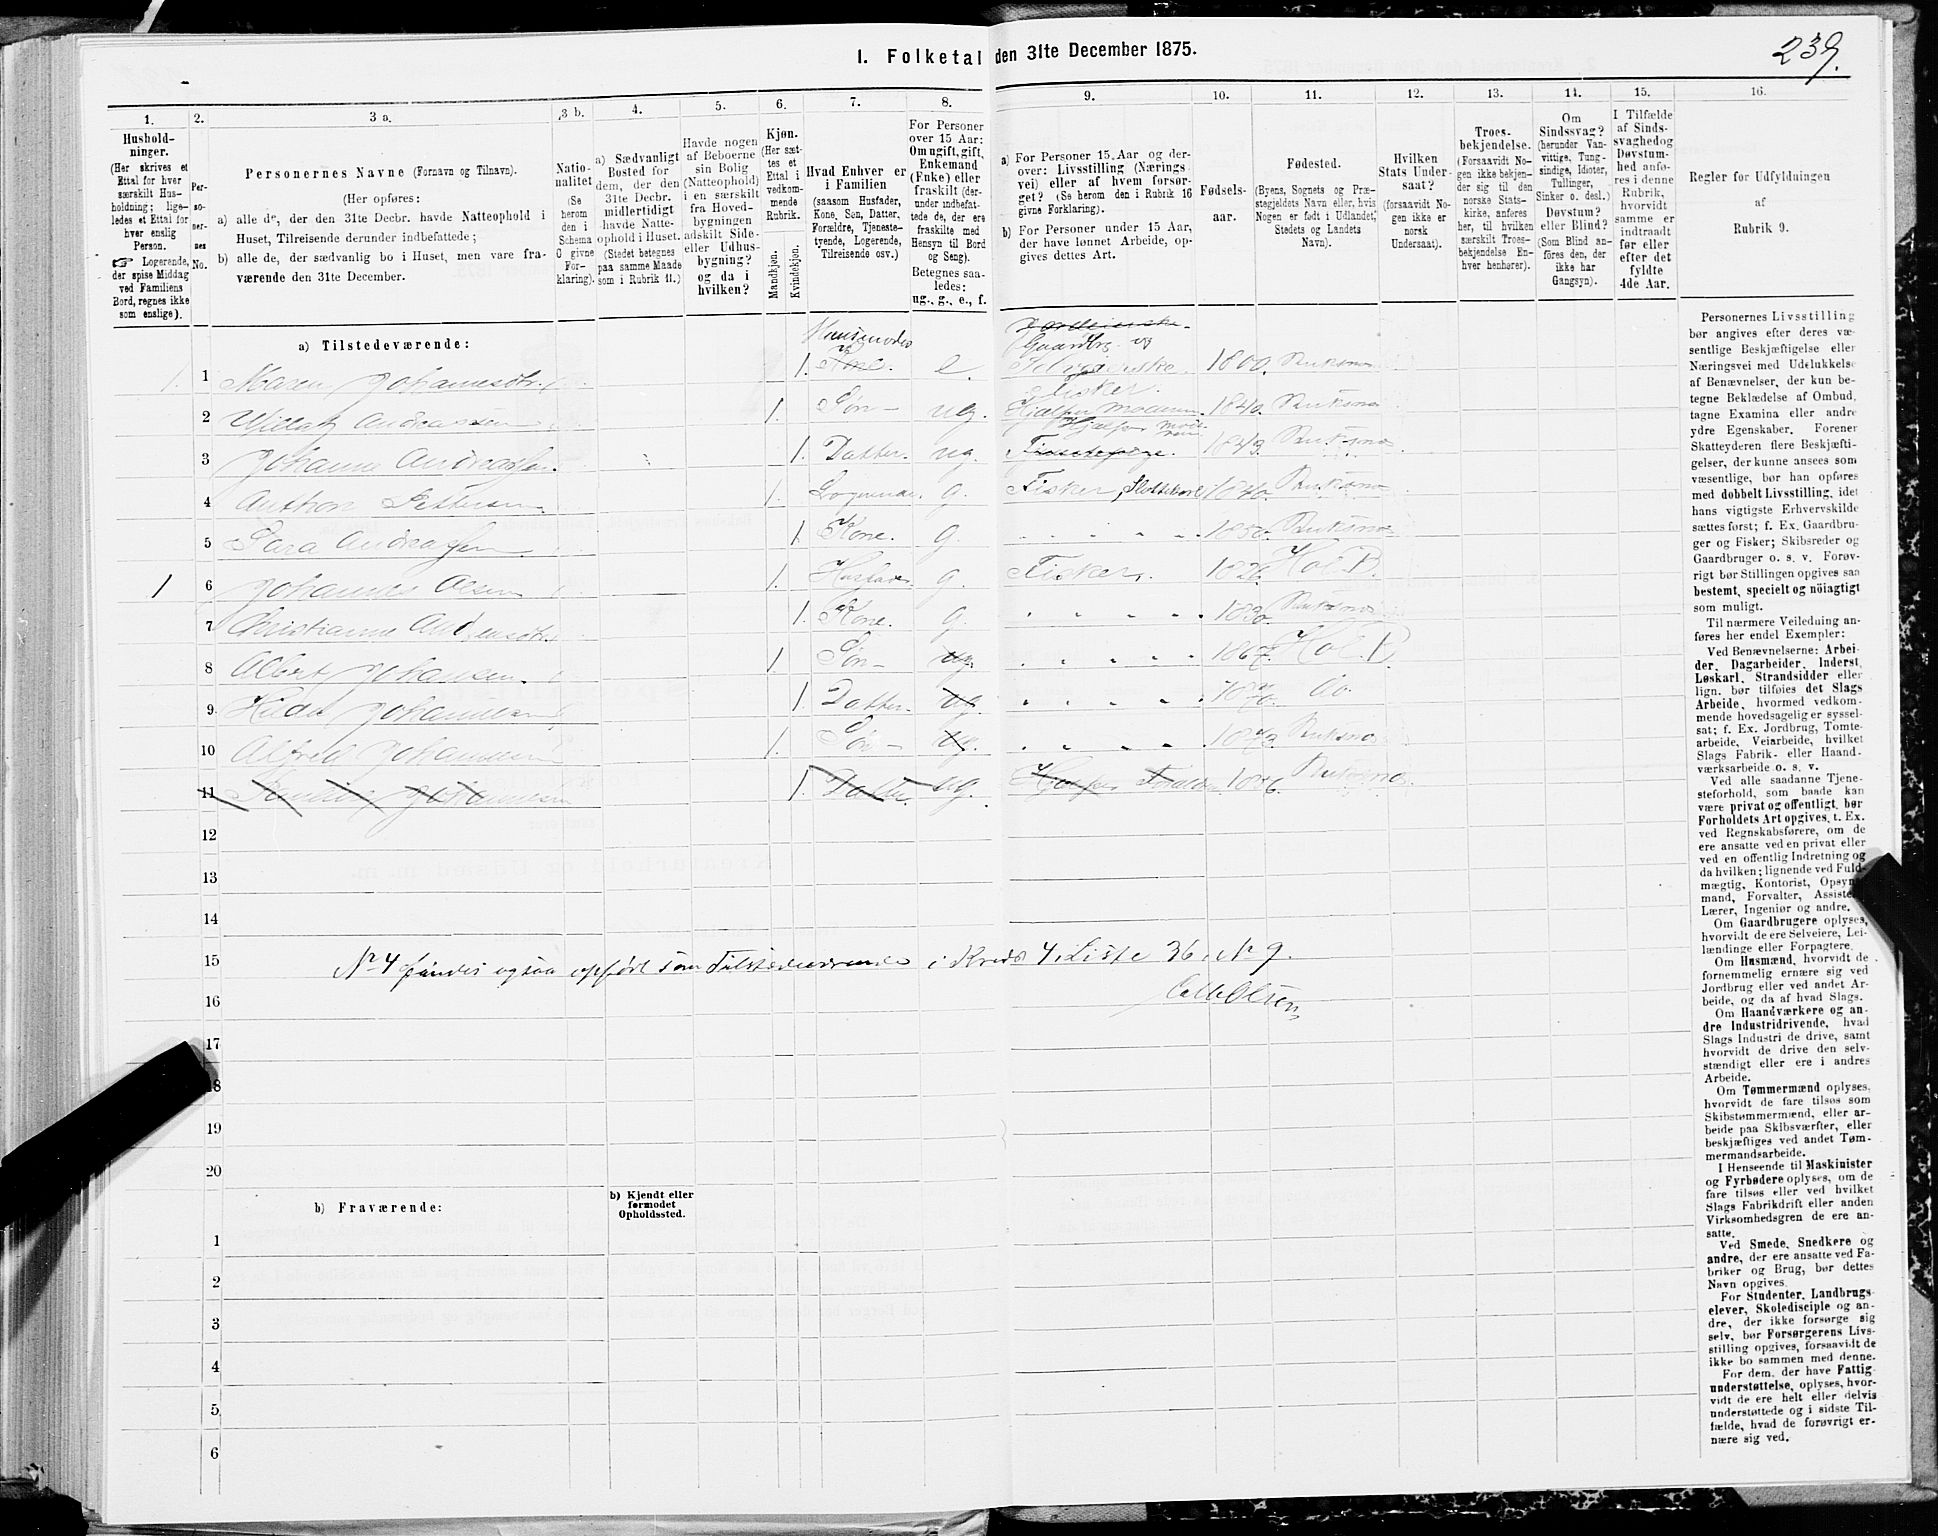 I. Folketal den 31te December 1875.
239.
1.
2.
3 a.
3 b.
4.
5.
6.
7.
8.
9.
10.
11.
12.
13.
14.
15.
16.
Hushold-
ninger.
(Her skrives et
Ettal for hver
særskilt Hus-
holdning; lige-
ledes et Ettal for
hver enslig
Person.
☞ Logerende,
der spise Middag
ved Familiens
Bord, regnes ikke
som enslige).
Per-
so-
ner-
nes
No.
Personernes Navne (Fornavn og Tilnavn).
(Her opføres:
a) alle de, der den 31te Decbr. havde Natteophold i
Huset, Tilreisende derunder indbefattede;
b) alle de, der sædvanlig bo i Huset, men vare fra-
værende den 31te December.
Natio-
nalitet
(Se
herom
den i
Schema
O givne
For-
klaring).
a) Sædvanligt
Bosted for
dem, der den
31te Decbr.
midlertidigt
havde Natte-
ophold i Huset.
(Stedet betegnes
paa samme Maade
som i Rubrik 11.)
Havde nogen
af Beboerne
sin Bolig
(Natteophold)
i en særskilt
fra Hoved-
bygningen
adskilt Side-
eller Udhus-
bygning?
og da i
hvilken?
Kjøn.
(Her sæt-
tes et
Ettal i
vedkom-
mende
Rubrik.
Mandkjøn.
Kvindekjøn.
Hvad Enhver er
i Familien
(saasom Husfader,
Kone, Søn, Datter,
Forældre, Tjeneste-
tyende, Logerende,
Tilreisende osv.)
For Personer
over 15 Aar:
Om ugift, gift,
Enkemand
(Enke) eller
fraskilt (der-
under indbefat-
tede de, der ere
fraskilte med
Hensyn til Bord
og Seng).
Betegnes saa-
ledes:
ug., g., e., f.
a) For Personer 15 Aar og der-
over: Livsstilling (Nærings
vei) eller af hvem forsør-
get? (Se herom den i Rubrik 16
givne Forklaring).
b) For Personer under 15 Aar,
der have lønnet Arbeide, op-
gives dettes Art.
Fødsels-
aar.
Fødested.
(Byens, Sognets og Præ-
stegjeldets Navn eller, hvis
Nogen er født i Udlandet,
Stedets og Landets
Navn).
Hvilken
Stats Under-
saat?
(forsaavidt No-
gen ikke er
norsk
Undersaat).
Troes-
bekjendelse.
(Forsaavidt No-
gen ikke bekjen-
der sig til den
norske Stats-
kirke, anføres
her, til hvilken
særskilt Troes-
bekjendelse En-
hver henhører).
Om
Sindssvag?
(herunder Van-
vittige, Tung-
sindige, Idioter,
Tullinger,
Sinker o. desl.)
Døvstum?
eller Blind?
(Som Blind an-
føres den, der
ikke har
Gangsyn).
I Tilfælde
af Sinds-
svaghed og
Døvstum-
hed anfø-
res i denne
Rubrik,
hvorvidt
samme er
indtraadt
før eller
efter det
fyldte
4de Aar.
Regler for Udfyldningen
af
Rubrik 9.
a) Tilstedeværende:
Gaardbr. og
1. 1 Maren Johannesdtr. 1. e. 1800.
Fisker.
2 Andreassen 1. Søn ug. Hjælper Moderen. 1840.
3 Johanna Andreassen 1. Datter. ug. 1843.
4 Anthon Pettersen 1. Logerende. g. Fisker, 1840.
5 Sara Andreassen 1. Kone. g. 1850.
1 6 Johannes Olsen 1. Husfader g. Fisker. 1826. Hol P.
7 Christianna 1. Kone. g. 1830.
8 Albert Johansen. 1 Søn ug. 1867. Hol P.
9. Johannesen 1. Datter. ug. 1870. do.
10 Alfred Johannesen 1. Søn ug. 1873.
11 Johannesen 1. Datter. ug. Hjælper
12
13
14
15 No 4 findes ogsaa opført som Tilstedeværende i Kreds 4, Liste 36, No 9.
16 Olsen
17
18
19
20
b) Fraværende:
b) Kjendt eller
formodet
Opholdssted.
1
2
3
4
5
6
Personernes Livsstilling
bør angives efter deres væ-
sentlige Beskjæftigelse eller
Næringsvei med Udelukkelse
af Benævnelser, der kun be-
tegne Beklædelse af Ombud,
tagne Examina eller andre
ydre Egenskaber. Forener
Skatteyderen flere Beskjæfti-
gelser, der kunne ansees som
væsentlige, bør han opføres
med dobbelt Livsstilling, idet
hans vigtigste Erhvervskilde
sættes først; f. Ex. Gaardbru-
ger og Fisker; Skibsreder og
Gaardbruger o. s. v. Forøv-
rigt bør Stillingen opgives saa
bestemt, specielt og nöiagtigt
som muligt.
Til nærmere Veiledning an-
føres her endel Exempler:
Ved Benævnelserne: Arbei-
der, Dagarbeider, Inderst,
Løskarl, Strandsidder eller
lign. bør tilføies det Slags
Arbeide, hvormed vedkom-
mende hovedsagelig er syssel-
sat; f. Ex. Jordbrug, Tomte-
arbeide, Veiarbeide, hvilket
Slags Fabrik- eller Haand-
værksarbeide o. s. v.
Ved alle saadanne Tjene-
steforhold, som baade kan
være privat og offentligt, bør
Forholdets Art opgives, t. Ex.
ved Regnskabsførere, om de
ere ansatte ved en privat eller
ved en offentlig Indretning og
da hvilken; lignende ved Fuld-
mægtig, Kontorist, Opsyns-
mand, Forvalter, Assistent,
Lærer, Ingeniør og andre.
Om Gaardbrugere oplyses,
hvorvidt de ere Selveiere, Lei-
lændinge eller Forpagtere.
Om Husmænd, hvorvidt de
fornemmelig ernære sig ved
Jordbrug eller ved andet Ar-
beide, og da af hvad Slags.
Om Haandværkere og an-
dre Industridrivende, hvad
Slags Industri de drive, samt
hvorvidt de drive den selv-
stændigt eller ere i andres
Arbeide.
Om Tømmermænd oplyses,
hvorvidt de fare tilsøs som
Skibstømmermænd, eller ar-
beide paa Skibsværfter, eller
beskjæftiges ved andet Tøm-
mermandsarbeide.
I Henseende til Maskinister
og Fyrbødere oplyses, om de
fare tilsøs eller ved hvilket
Slags Fabrikdrift eller anden
Virksomhedsgren de ere an-
satte.
Ved Smede, Snedkere og
andre, der ere ansatte ved Fa-
briker og Brug, bør dettes
Navn opgives.
For Studenter, Landbrugs-
elever, Skoledisciple og an-
dre, der ikke forsørge sig
selv, bør Forsørgerens Livs-
stilling opgives, forsaavidt de
ikke bo sammen med denne.
For dem, der have Fattig-
understøttelse, oplyses, hvor-
vidt de ere helt eller delvis
understøttede og i sidste Til-
fælde, hvad de forøvrigt er-
nære sig ved.